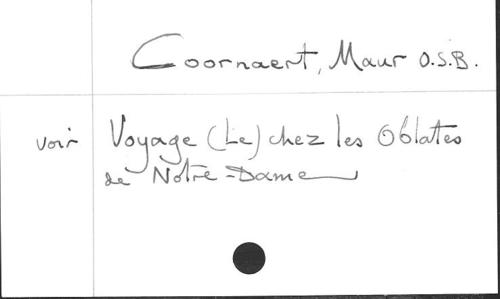 Coornaert, Maur O.S.B.
voir Voyage (Le) chez les Oblates
de Notre-Dame